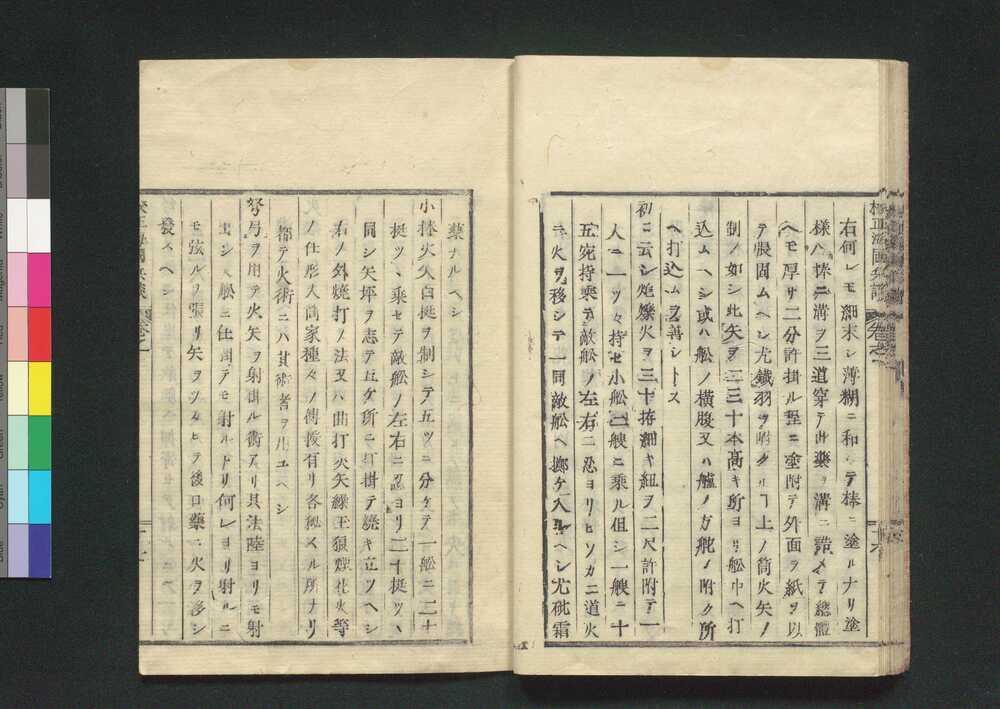 右何レモ細末シ薄糊ニ和シテ棒ニ塗ルナリ塗
様ハ棒ニ溝ヲ三道穿テ此藥ヲ溝ニ詰メテ總體
ヘモ厚サ二分許掛ル程ニ塗附テ外面ヲ紙ヲ以
テ張固ムヘシ尤鐵羽ヲ附クルヿ上ノ筒火矢ノ
制ノ如シ此矢ヲ二三十本高キ所ヨリ舩中ヘ打
込ムヘシ或ハ舩ノ横腹又ハ艫ノ方舵ノ附ク所
ヘ打込ムヲ善シトス
初ニ云シ炮爍火ヲ三十拵細キ紐ヲ二尺許附テ一
人ニ一ツヽ持セ小舩二艘ニ乘ル但シ一艘ニ十
五宛持乘テ敵舩ノ左右ニ忍ヨリヒソカニ道火
ニ火ヲ移シテ一同敵舩ヘ擲ケ入ルヘシ尤砒霜
藥ナルヘシ
小棒火矢百挺ヲ制シテ五ツニ分ケテ一舩ニ二十
挺ツヽ乘セテ敵舩ノ左右ニ忍ヨリ二十挺ツヽ
同シ矢坪ヲ志テ五ケ所ニ打掛テ燒キ立ツヘシ
右ノ外燒打ノ法又ハ曲打火矢繰玉狼煙花火等
ノ仕形人商家種々ノ傳授有リ各秘スル所ナリ
都テ火術ニハ其術者ヲ用ユヘシ
弩弓ヲ用テ火矢ヲ射掛ル術アリ其法陸ヨリモ射
出シ舩ニ仕間テモ射ルトリ何レヨリ射ルニ
モ弦ルヲ張リ矢ヲツカヒテ後口藥ニ火ヲ移シ
發スヘシ